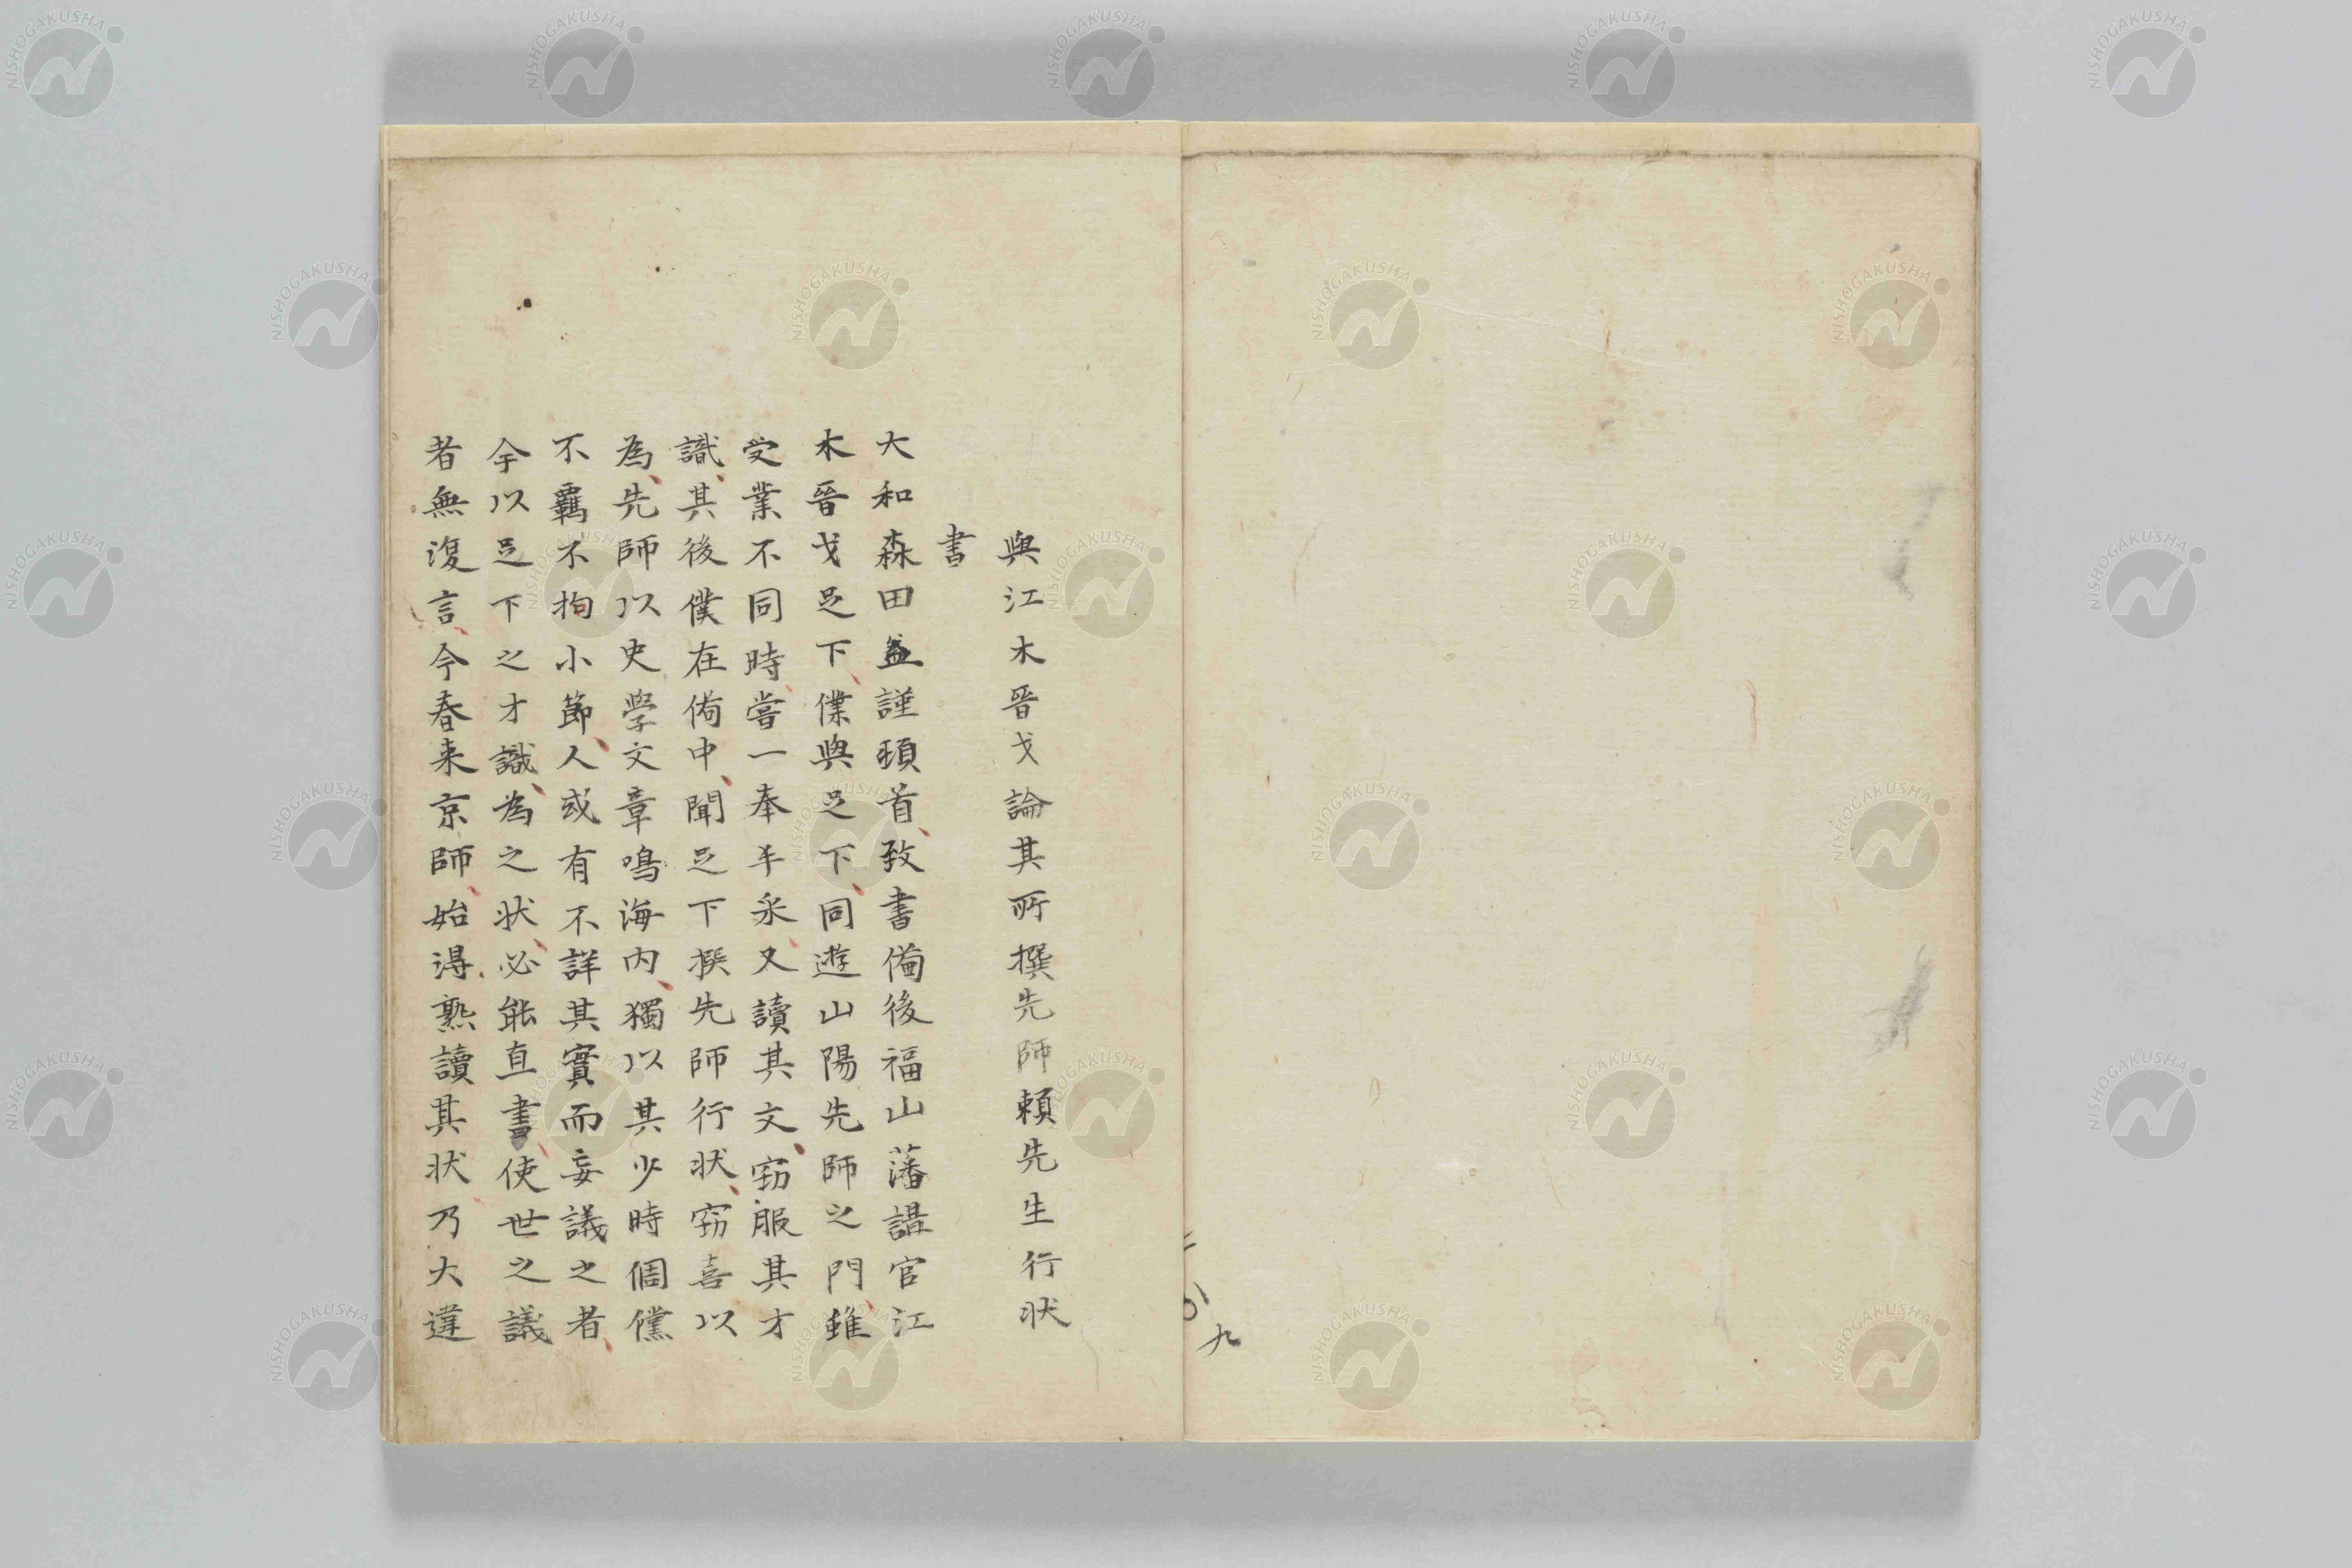 與江木晋戈論其所撰先師賴先生行状
書
大和森田益謹頓首致書備後福山藩講官江
木晋戈足下僕與足下同遊山陽先師之門雖
受業不同時嘗一奉手矣又讀其文窃服其才
識其後僕在備中聞足下撰先師行状窃喜以
為先師以史學文章鳴海内獨以其少時倜儻
不羈不拘小節人或有不詳其實而妄議之者
今以足下之才識為之状必能直書使世之議
者無復言今春来京師始得熟讀其状乃大違
九
NISHOGAKUSHA